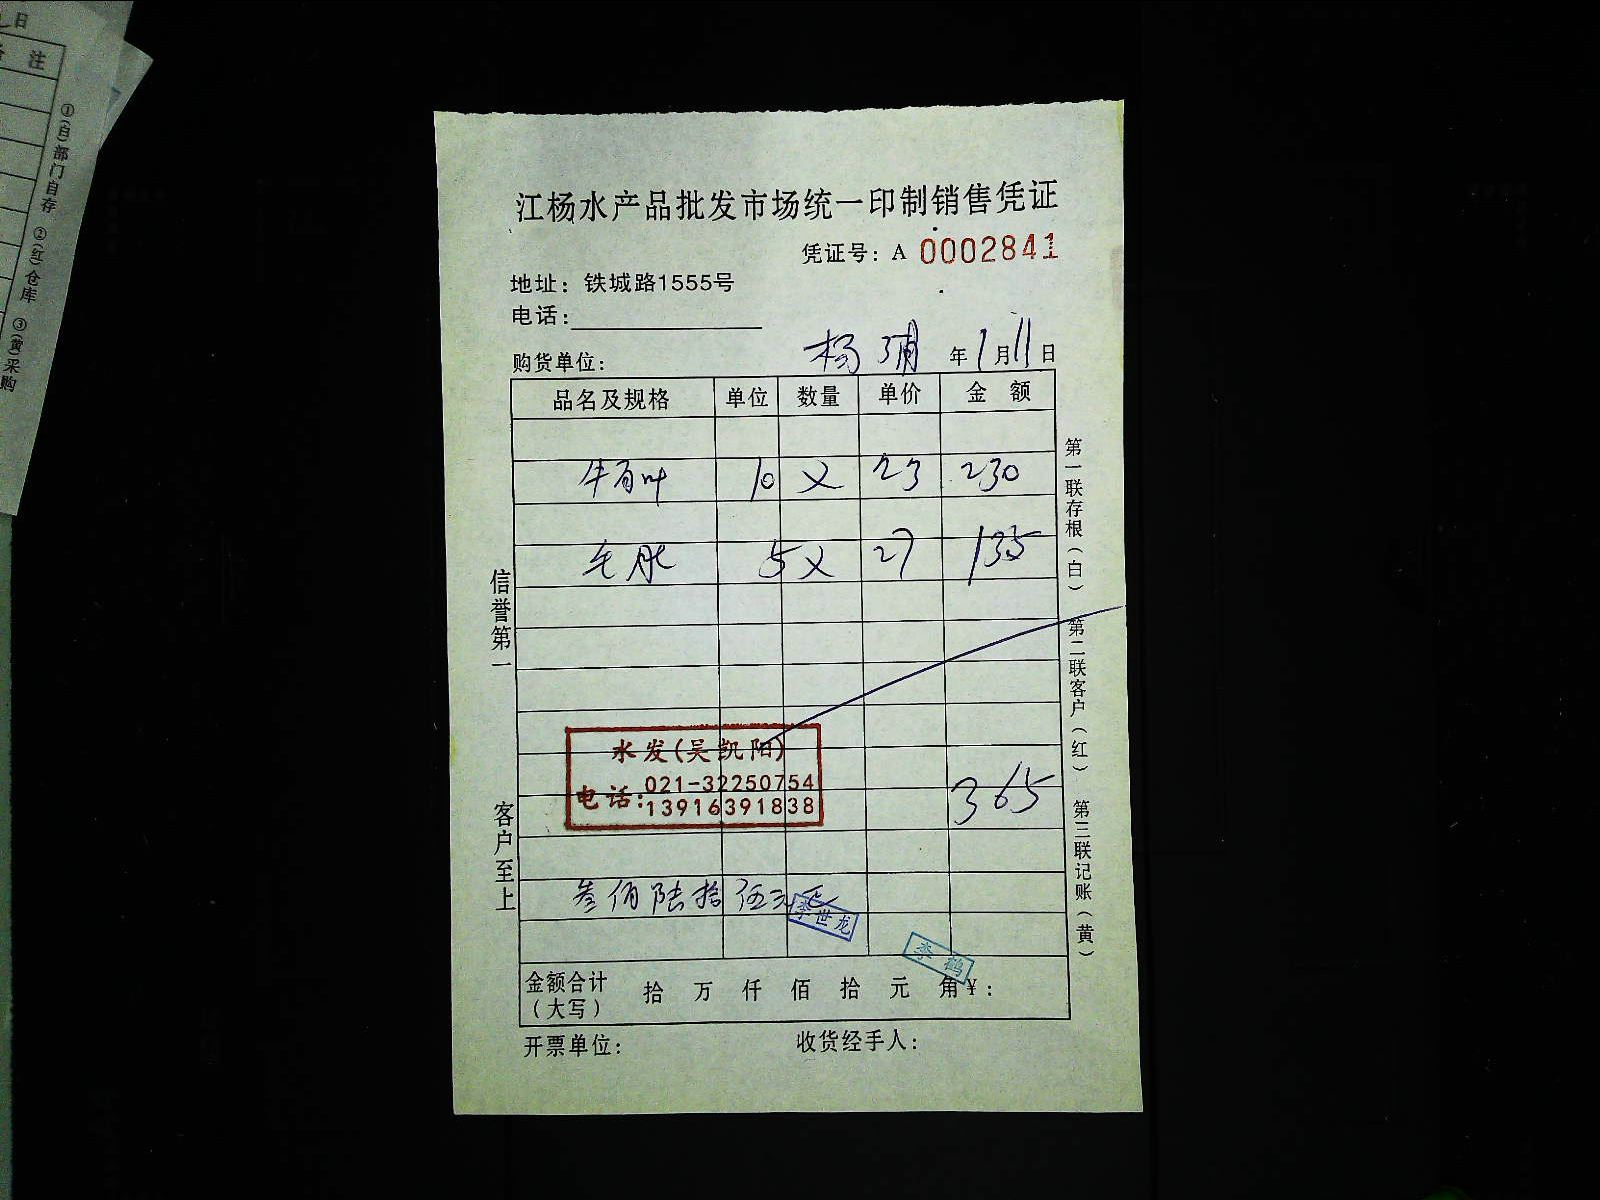 日
备 注
①(白)部门自存 ②(红)仓库 ③(黄)采购
江杨水产品批发市场统一印制销售凭证
凭证号：A 0002841
地址：铁城路1555号
电话：
购货单位： 杨浦 年 1 月 11 日
品名及规格 单位 数量 单价 金 额
牛百叶 10 义 23 230
毛肚 5 义 27 135
信誉第一
客户至上
第一联存根(白) 第二联客户(红) 第三联记账(黄)
水发(吴凯阳)
电话:021-32250754
13916391838
365
叁佰陆拾伍元正
李世龙
李鹤
金额合计(大写) 拾 万 仟 佰 拾 元 角 ¥：
开票单位： 收货经手人：